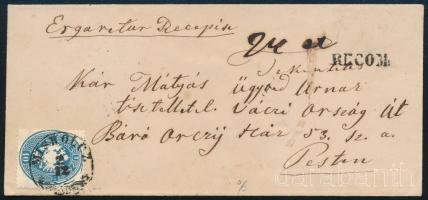 Ergaretur Recepisse
RECOM.
Tekintetes
Kár Mátyás Ügyvéd Urnak
tisztelettel Váczi Ország Út
Báró Orczy Ház 53. sz. a.
Pesten
MISKOLCZ
darabanth